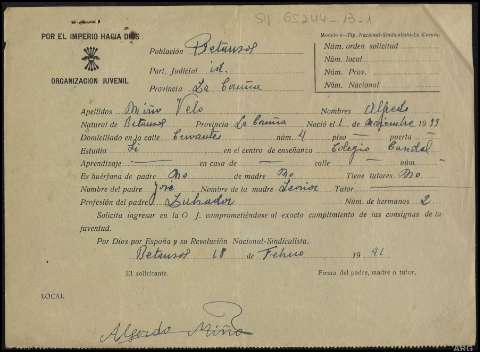 SV 65244-B-1
POR EL IMPERIO HACIA DIOS
ORGANIZACION JUVENIL
Modelo 6-Tip. Nacional-Sindicalista-La Coruña
Núm. orden solicitud
Núm. local
Núm. Prov.
Núm. Nacional
Población Betanzos
Part. Judicial id.
Provincia La Coruña
Apellidos Miño Velo Nombres Alfredo
Natural de Betanzos Provincia La Coruña Nació el 1 1933
Domiciliado en la calle Cervantes núm. 4 piso — puerta —
Estudia Si en el centro de enseñanza Colegio
Aprendizaje — en casa de — calle — núm.
Es huérfana de padre No de madre No Tiene tutores No
Nombre del padre José Nombre de la madre Leonor Tutor —
Profesión del padre Labrador Núm. de hermanos 2
Solicita ingresar en la O. J. comprometiéndose al exacto cumplimiento de las consignas de la
juventud.
Por Dios por España y su Revolución Nacional-Sindicalista.
Betanzos 18 de Febrero 1941
El solicitante, Firma del padre, madre o tutor,
LOCAL
Miño
ARG